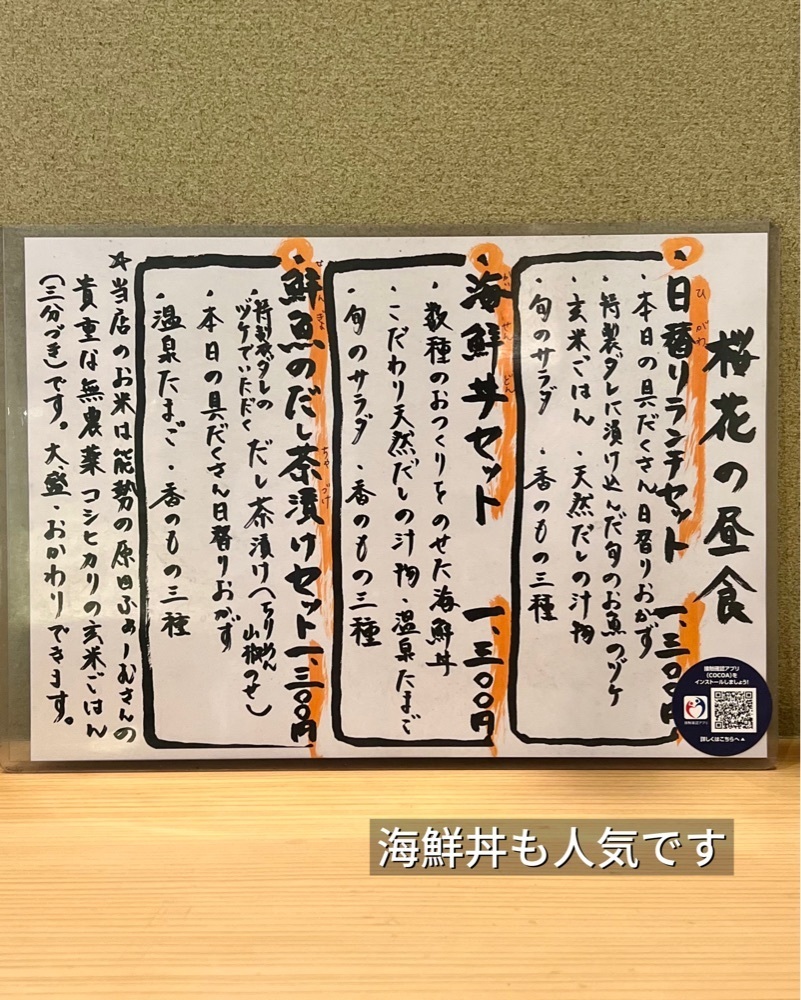 桜花の昼食
・日替りランチセット 一、三〇〇円
ひがわ
・本日の具だくさん日替りおかず
・特製ダレに漬け込んだ旬のお魚のヅケ
・玄米ごはん ・天然だしの汁物
・旬のサラダ ・香のもの三種
・海鮮丼セット 一、三〇〇円
かいせんどん
・数種のおつくりをのせた海鮮丼
・こだわり天然だしの汁物・温泉たまご
・旬のサラダ ・香のもの三種
・鮮魚のだし茶漬けセット 一、三〇〇円
せんぎょ ちゃづけ
・特製ダレの
ヅケでいただく だし茶漬け(ちりめん
山椒のせ)
・本日の具だくさん日替りおかず
・温泉たまご ・香のもの三種
☆当店のお米は能勢の原田ふぁーむさんの
貴重な無農薬 コシヒカリの玄米ごはん
(三分づき)です。大盛・おかわりできます。
接触確認アプリ
(COCOA)を
インストールしましょう!
接触確認アプリ
詳しくはこちらへ▲
海鮮丼も人気です